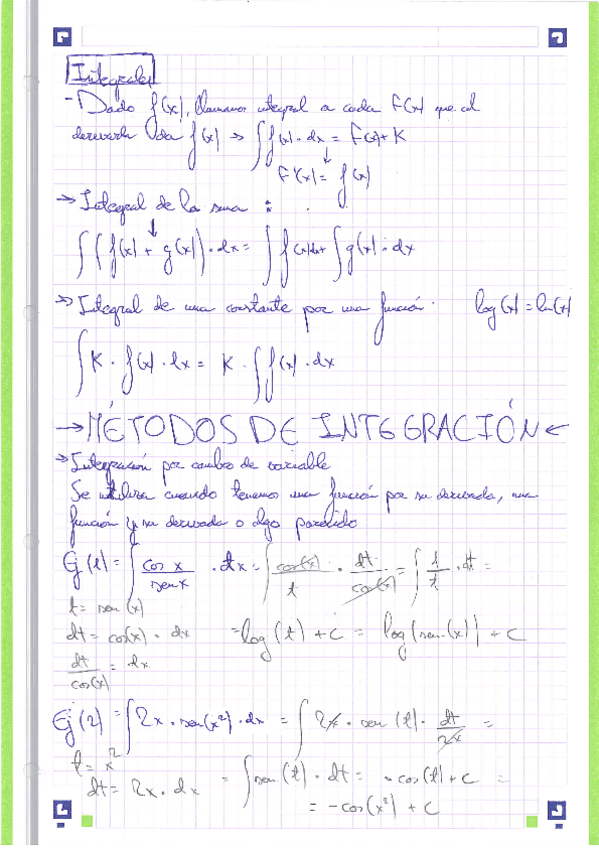 Integrales
- Dado f(x), llamamos integral a cada F(x) que al
derivarla da f(x) → ∫ f(x) · dx = F(x) + K
↓
F'(x) = f(x)
→ Integral de la suma :
∫ (f(x) + g(x)) · dx = ∫ f(x)dx + ∫ g(x) · dx
→ Integral de una constante por una función. log(x) = ln(x)
∫ K · f(x) · dx = K · ∫ f(x) · dx
→ MÉTODOS DE INTEGRACIÓN ←
→ Integración por cambio de variable
Se utiliza cuando tenemos una función por su derivada, una
función y su derivada o algo parecido
Ej (1) = ∫ cos x / sen x · dx = ∫ cos(x) / t · dt / cos(x) = ∫ 1 / t · dt =
t = sen (x)
dt = cos(x) · dx = log (t) + c = log (sen (x)) + c
dt / cos(x) = dx
Ej (2) = ∫ 2x · sen(x²) · dx = ∫ 2x · sen (t) · dt / 2x =
t = x²
dt = 2x · dx = ∫ sen (t) · dt = - cos(t) + c =
= -cos(x²) + c